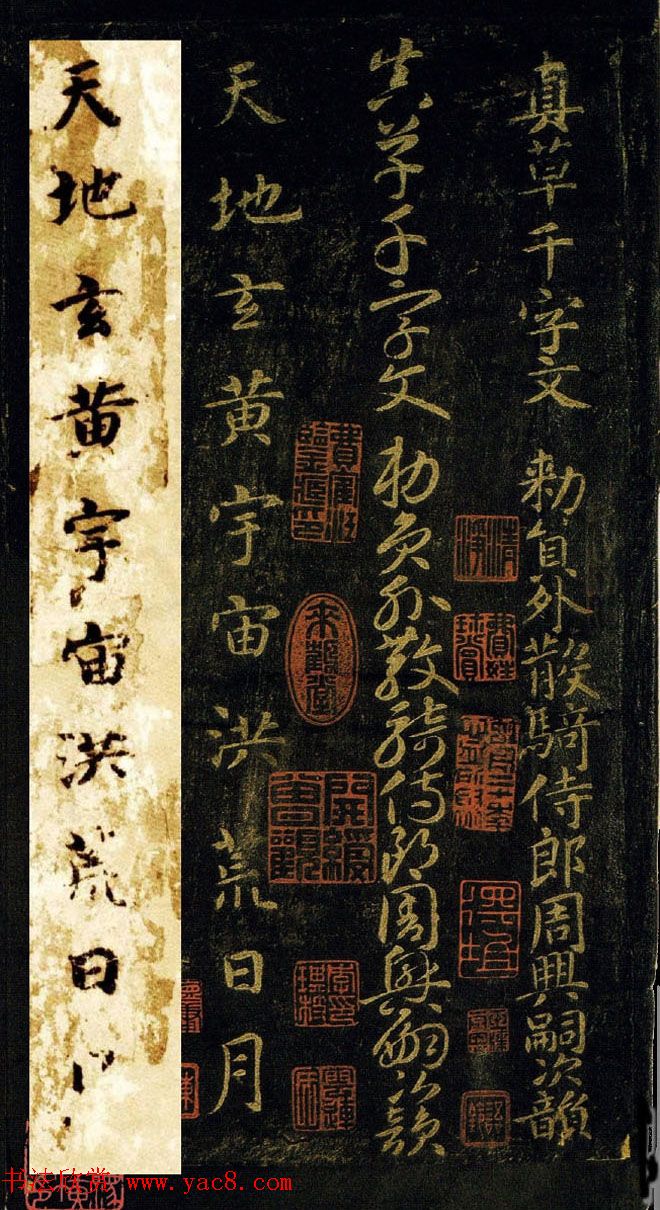 真草千字文 勅員外散騎侍郎周興嗣次韻
真草千字文 勅員外散騎侍郎周興嗣次韻
天地玄黄宇宙洪荒日月
天地玄黄宇宙洪荒日
来観堂
書法欣赏 www.yac8.com